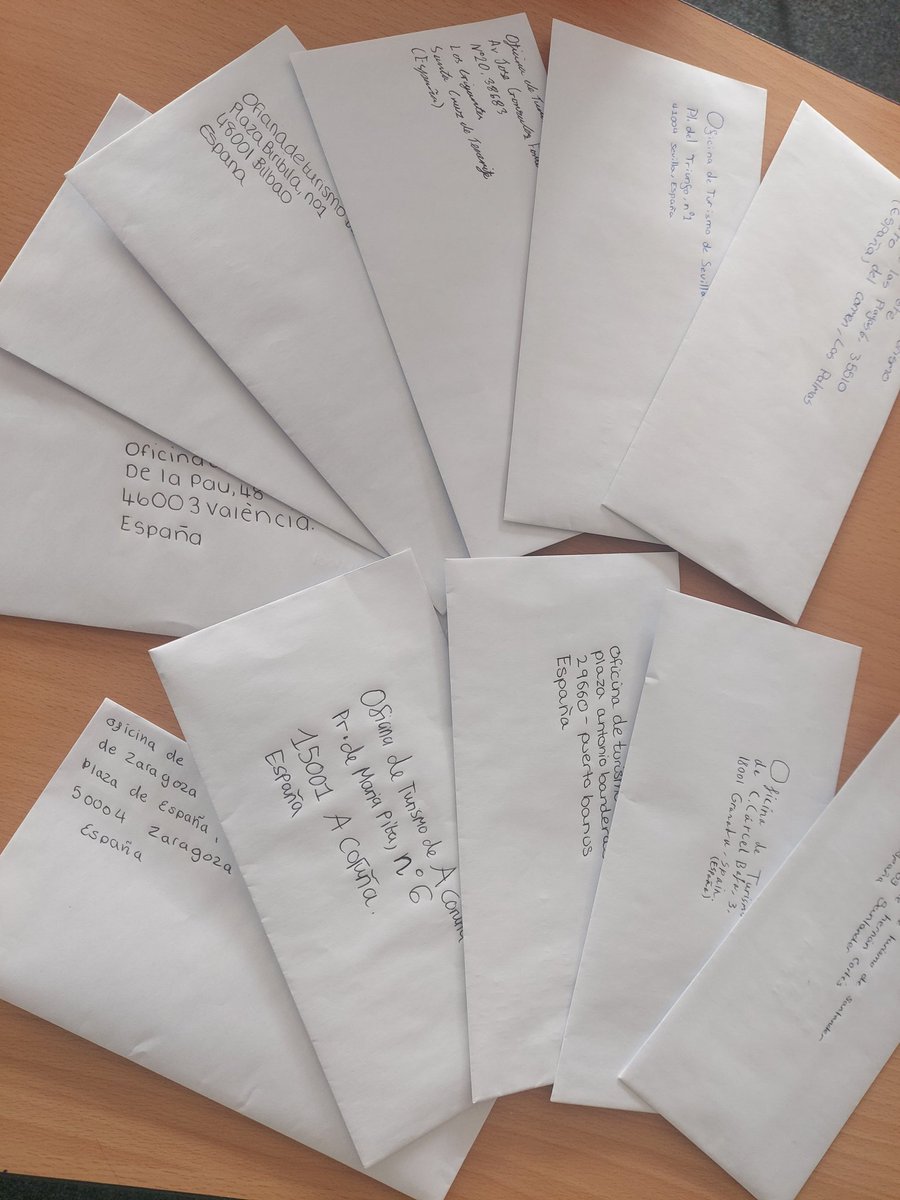 Oficina de turismo
Plaza Biribila, no1
48001 Bilbao
España
Oficina de
Av Jose Gonzalez
Nº20. 38683
Los Gigantes
Santa Cruz de Tenerife
(España)
Oficina de Turismo de Sevilla
Pl. del Triunfo, nº1
41004 Sevilla, España
35510
España, del Carmen, Las Palmas
Oficina
De la Pau, 48
46003 València.
España
oficina de
de Zaragoza
plaza de España,
50004 Zaragoza
España
Ofiana de Turismo de A Coruña
Pr. de María Pita, nº6
15001 A Coruña.
España
oficina de turismo
plaza antonio banderas
29660 - puerto banos
España
Oficina de Turismo
de C.Cárcel Baja, 3.
18001 Granada, Spain
(España).
turismo de Santander
hernán Cortés
Santander
España